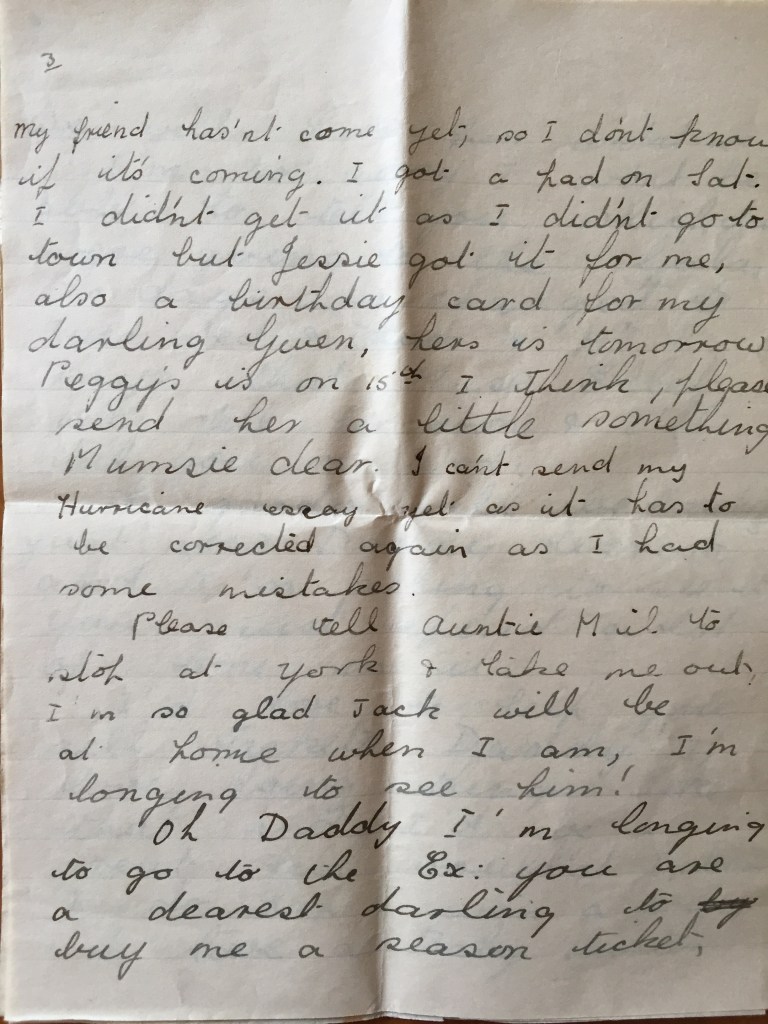 3
my friend has'nt come yet, so I do'nt know
if it's coming. I got a pad on Sat.
I did'nt get it as I did'nt go to
town but Jessie got it for me,
also a birthday card for my
darling Gwen, hers is tomorrow
Peggy's is on 15th I think, please
send her a little something
Mumsie dear. I ca'nt send my
Hurricane essay yet as it has to
be corrected again as I had
some mistakes.
Please tell Auntie Mil. to
stop at York & take me out,
I'm so glad Jack will be
at home when I am, I'm
longing to see him!
Oh Daddy I'm longing
to go to the Ex: you are
a dearest darling to by
buy me a season ticket,